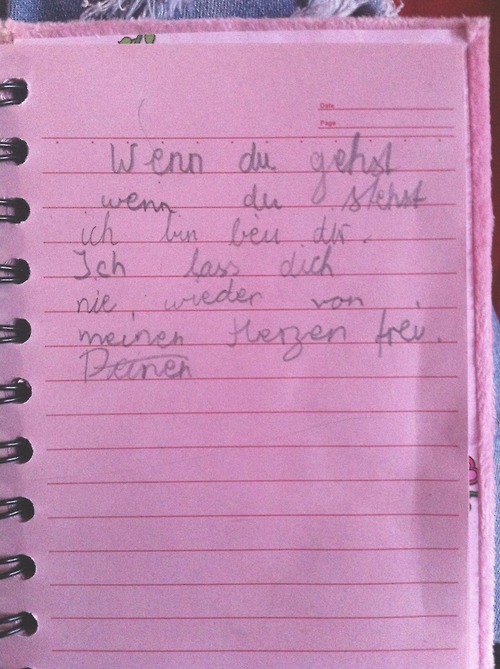 Date
Page
Wenn du gehst
wenn du stehst
ich bin beii dir.
Ich lass dich
nie wieder von
meinen Herzen frei.
Deinen